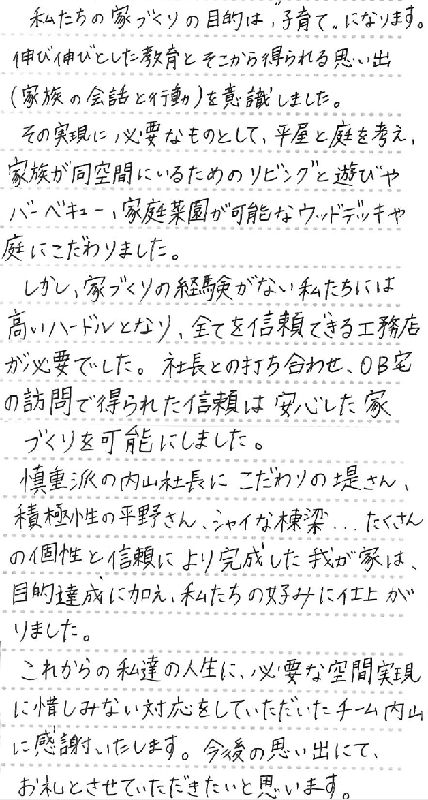 私たちの家づくりの目的は、"子育て"になります。
伸び伸びとした教育とそこから得られる思い出
(家族の会話と行動)を意識しました。
その実現に必要なものとして、平屋と庭を考え、
家族が同空間にいるためのリビングと遊びや
バーベキュー、家庭菜園が可能なウッドデッキや
庭にこだわりました。
しかし、家づくりの経験がない私たちには
高いハードルとなり、全てを信頼できる工務店
が必要でした。社長との打ち合わせ、OB宅
の訪問で得られた信頼は安心した家
づくりを可能にしました。
慎重派の内山社長にこだわりの堤さん、
積極性の平野さん、シャイな棟梁...たくさん
の個性と信頼により完成した我が家は、
目的達成に加え、私たちの好みに仕上が
りました。
これからの私達の人生に、必要な空間実現
に惜しみない対応をしていただいたチーム内山
に感謝いたします。今後の思い出にて、
お礼とさせていただきたいと思います。